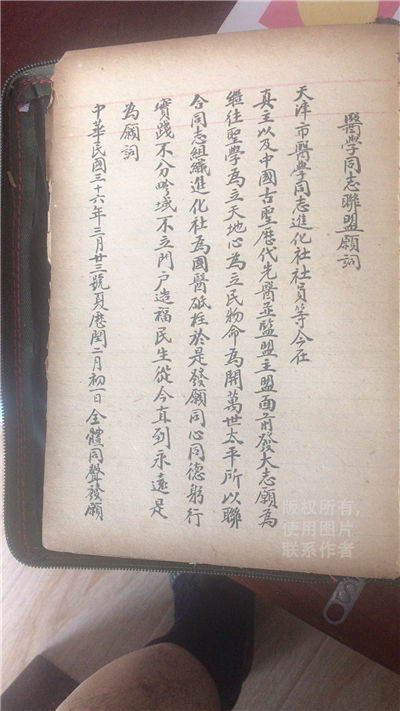 醫學同志聯盟願詞
天津市醫學同志進化社社員等今在
真主以及中國古聖歷代先醫並監盟主盟面前發大志願為
繼往聖學為立天地心為立民物命為開萬世太平所以聯
合同志組織進化社為國醫砥柱於是發願同心同德躬行
實踐不分畛域不立門户造福民生從今直到永遠是
為願詞
中華民國三十六年三月廿三號夏歷閏二月初一日全體同聲發願
版权所有,
使用图片
联系作者